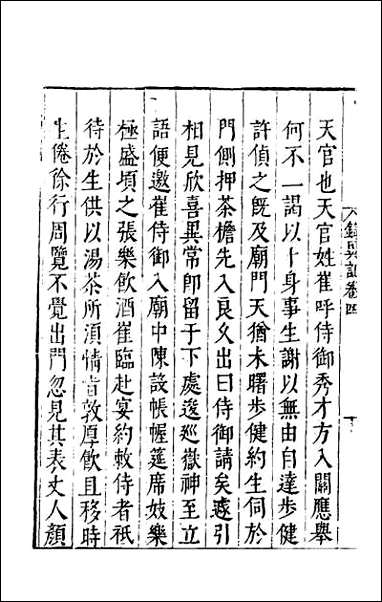 天官也天官姓崔呼侍御秀才方入關應舉
何不一謁以卜身事生謝以無由自達步健
許偵之旣及廟門天猶未曙步健約生伺於
門側押茶檐先入良久出曰侍御請矣遽引
相見欣喜異常卽留于下處逡廵嶽神至立
語便邀崔侍御入廟中陳設帳幄筵席妓樂
極盛頃之張樂飲酒崔臨赴宴約敕侍者祇
待於生供以湯茶所須情旨敦厚飲且移時
生倦徐行周覽不覺出門忽見其表丈人顏
錄異記卷四